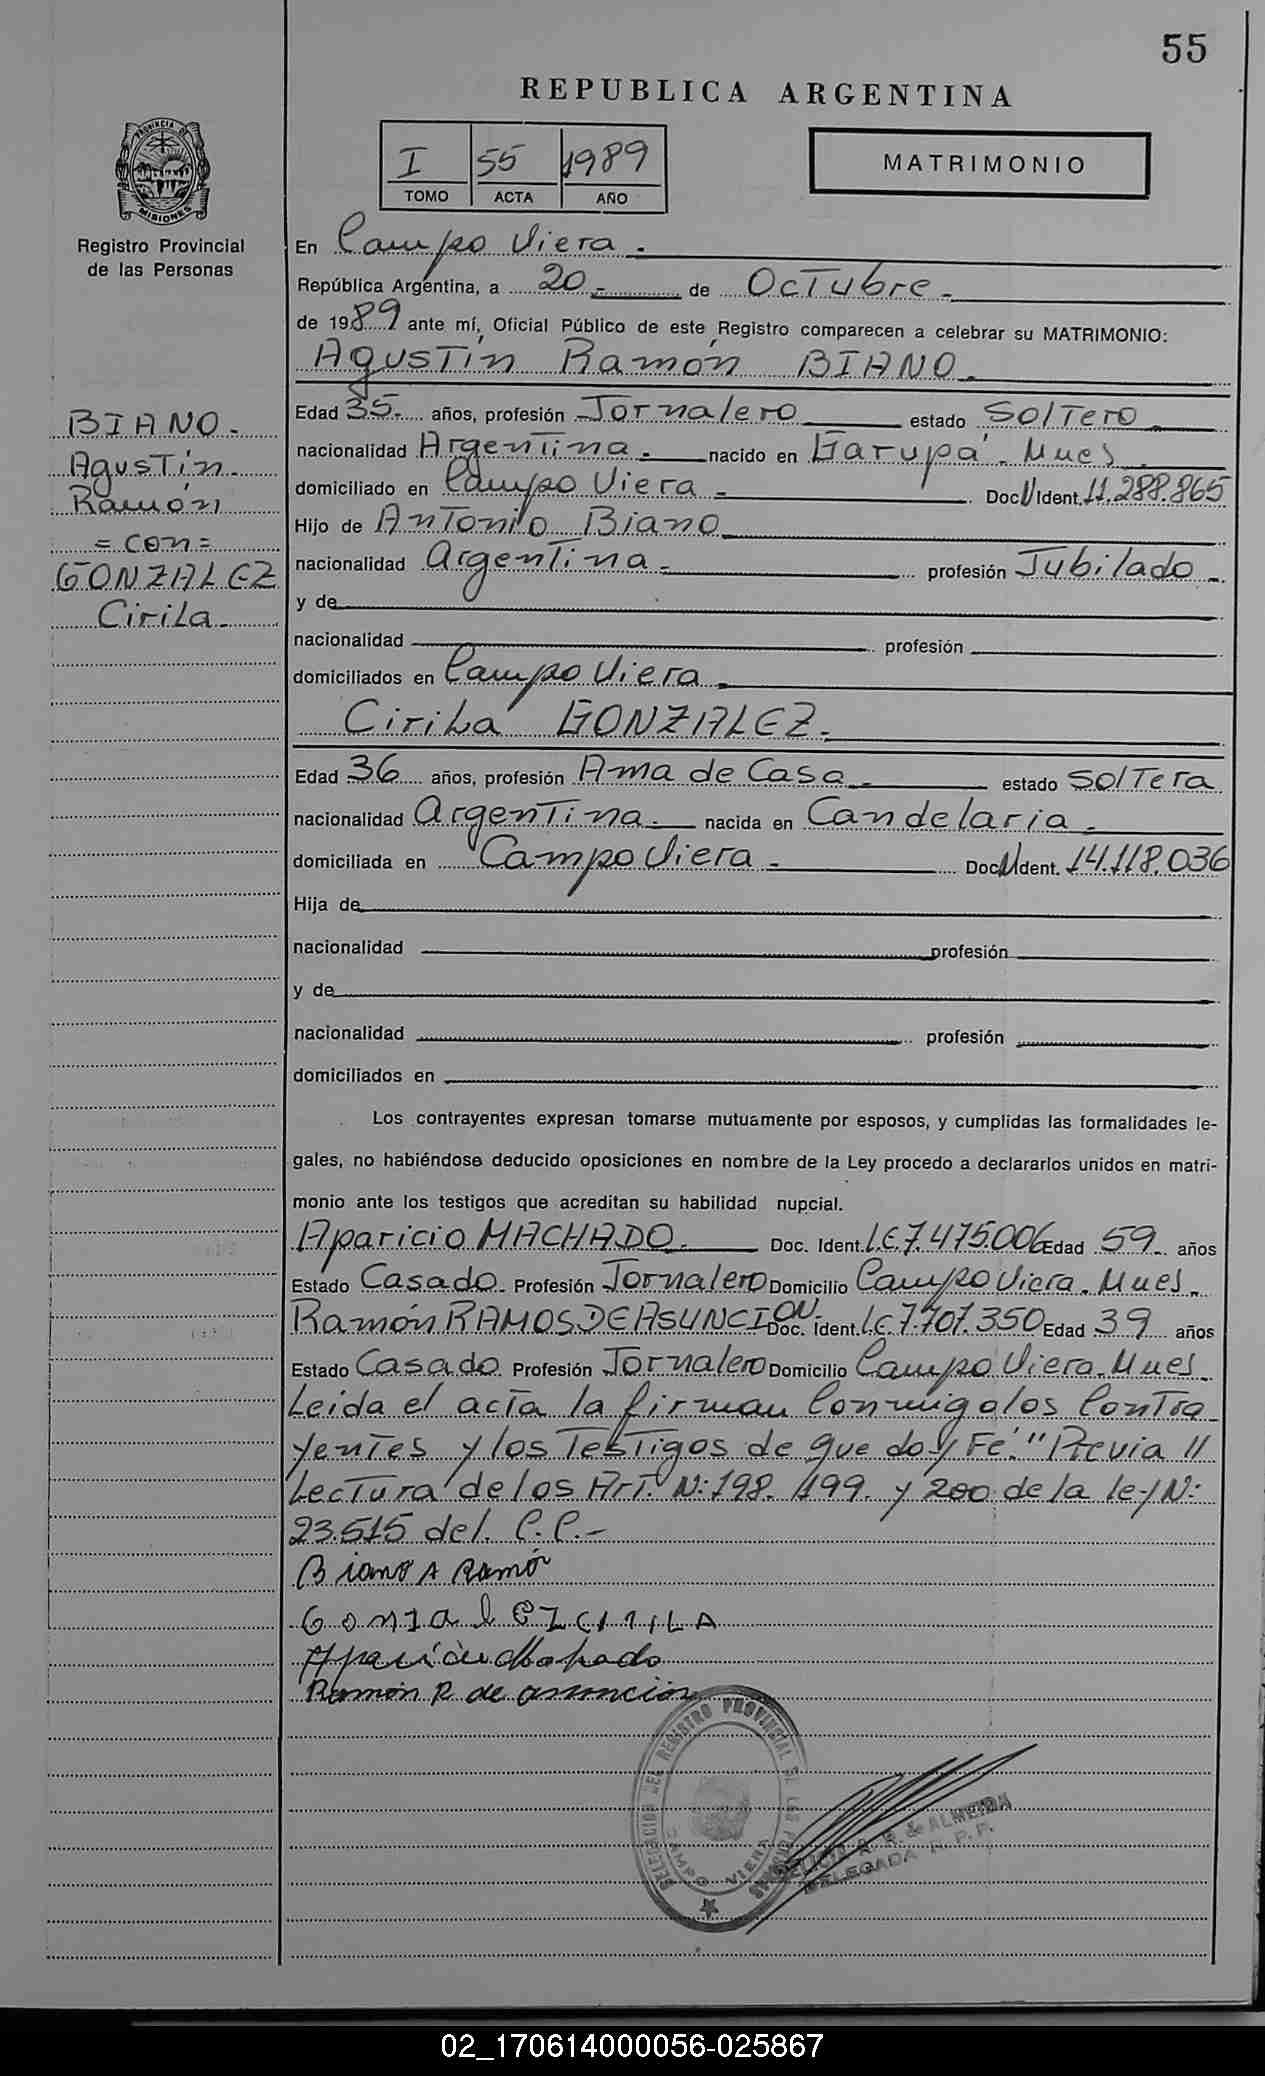 55
REPUBLICA ARGENTINA
I 55 1989
TOMO ACTA AÑO
MATRIMONIO
PROVINCIA DE MISIONES
Registro Provincial
de las Personas
BIANO.
Agustín.
Ramón
= con =
GONZALEZ
Cirila.
En Campo Viera.
República Argentina, a 20 de Octubre.
de 1989 ante mí, Oficial Público de este Registro comparecen a celebrar su MATRIMONIO:
Agustín Ramón BIANO.
Edad 35. años, profesión Jornalero estado Soltero
nacionalidad Argentina. nacido en Garupá. Mnes
domiciliado en Campo Viera Doc. Ident. 11.288.865
Hijo de Antonio Biano
nacionalidad argentina. profesión Jubilado.
y de
nacionalidad profesión
domiciliados en Campo Viera
Cirila GONZALEZ.
Edad 36 años, profesión Ama de Casa. estado Soltera
nacionalidad argentina. nacida en Candelaria.
domiciliada en Campo Viera. Doc. Ident. 14.118.036
Hija de
nacionalidad profesión
y de
nacionalidad profesión
domiciliados en
Los contrayentes expresan tomarse mutuamente por esposos, y cumplidas las formalidades le-
gales, no habiéndose deducido oposiciones en nombre de la Ley procedo a declararlos unidos en matri-
monio ante los testigos que acreditan su habilidad nupcial.
Aparicio MACHADO. Doc. Ident. L.E.7.475006 Edad 59 años
Estado Casado. Profesión Jornalero Domicilio Campo Viera. Mnes.
Ramón RAMOS DE ASUNCION. Doc. Ident. L.E.7.707.350 Edad 39 años
Estado Casado. Profesión Jornalero Domicilio Campo Viera. Mnes.
Leida el acta la firman Conmigo los Contra
yentes y los Testigos de que doy Fé." Previa //
Lectura de los Art. N: 198. 199. y 200 de la ley N:
23.515 del. C.C.-
Biano A Ramón
Gonzalez CIRILA
Aparicio Machado
Ramón R de asuncion
DELEGACION DEL REGISTRO PROVINCIAL DE LAS PERSONAS
CAMPO VIERA
DE ALMEIDA
DELEGADA R. P. P.
02_170614000056-025867